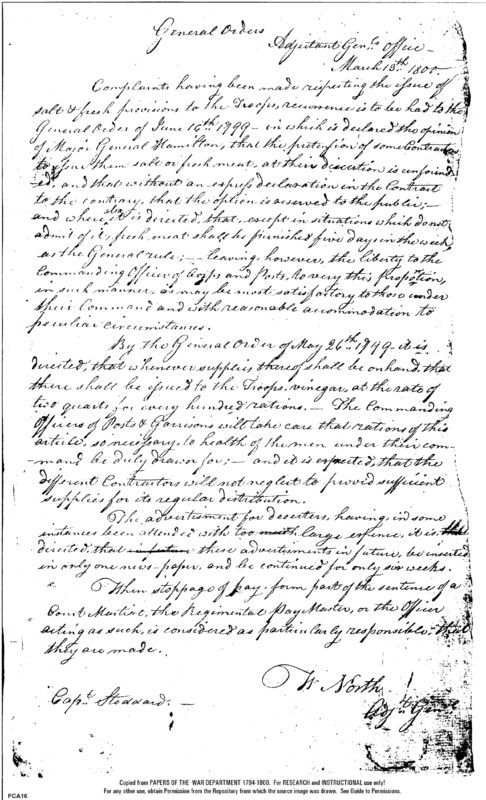 General Orders
Adjutant Genls Office —
March 13th 1800 —
Complaints having been made respecting the issue of
salt & fresh provisions to the Troops, recurrence is to be had to the
General Order of June 10th 1799 — in which is declared the opinion
of Major General Hamilton, that the pretension of some Contractors
to issue them salt or fresh meat, at their discretion is unfound
ed, and that without an express declaration in the Contract
to the contrary, that the option is reserved to the public; —
and where also it is directed, that, except in situations which do not
admit of it, fresh meat shall be furnished five days in the week
as the General rule; — leaving, however, the liberty to the
Commanding Officer of Corps and Posts, to very this proportion,
in such manner, as may be most satisfactory to those under
their Command and with reasonable accommodation to
peculiar circumstances.
By the General Order of May 26th 1799 it is
directed, that whenever supplies thereof shall be on hand, that
there shall be issued to the Troops, vinegar, at the rate of
two quarts for every hundred rations. — The Commanding
Officers of Posts & Garrisons will take care that rations of this
article, so necessary to health of the men under their com-
-mand be duly drawn for; — and it is expected, that the
different Contractors will not neglect to provid sufficient
supplies for its regular distribution.
The advertisment for deserters, having, in some
instances been attended with too large expense, it is
directed, that these advertisments in future, be inserted
in only one news-paper, and be continued for only six weeks.
When stoppage of pay, form part of the sentence of a
Court Martial, the Regimental Pay Master, or the Officer
acting as such, is considered as particularly responsible, that
they are made.
W North
Adjt Genl
Capt. Stoddard. —
Copied from PAPERS OF THE WAR DEPARTMENT 1784-1800. For RESEARCH and INSTRUCTIONAL use only!
For any other use, obtain Permission from the Repository from which the source image was drawn. See Guide to Permissions.
FCA16